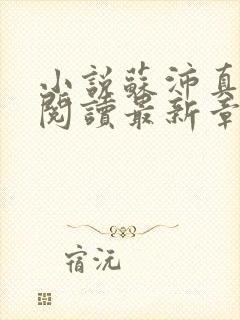 小說蘇沛真
閱讀最新章
宿沅